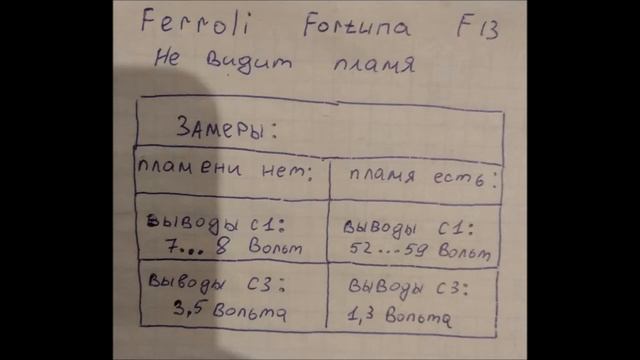 Ferroli Fortuna F13
Не видит пламя
Замеры:
пламени нет: пламя есть:
выводы с1: выводы с1:
7...8 Вольт 52...59 Вольт
выводы с3: выводы с3:
3,5 Вольта 1,3 Вольта